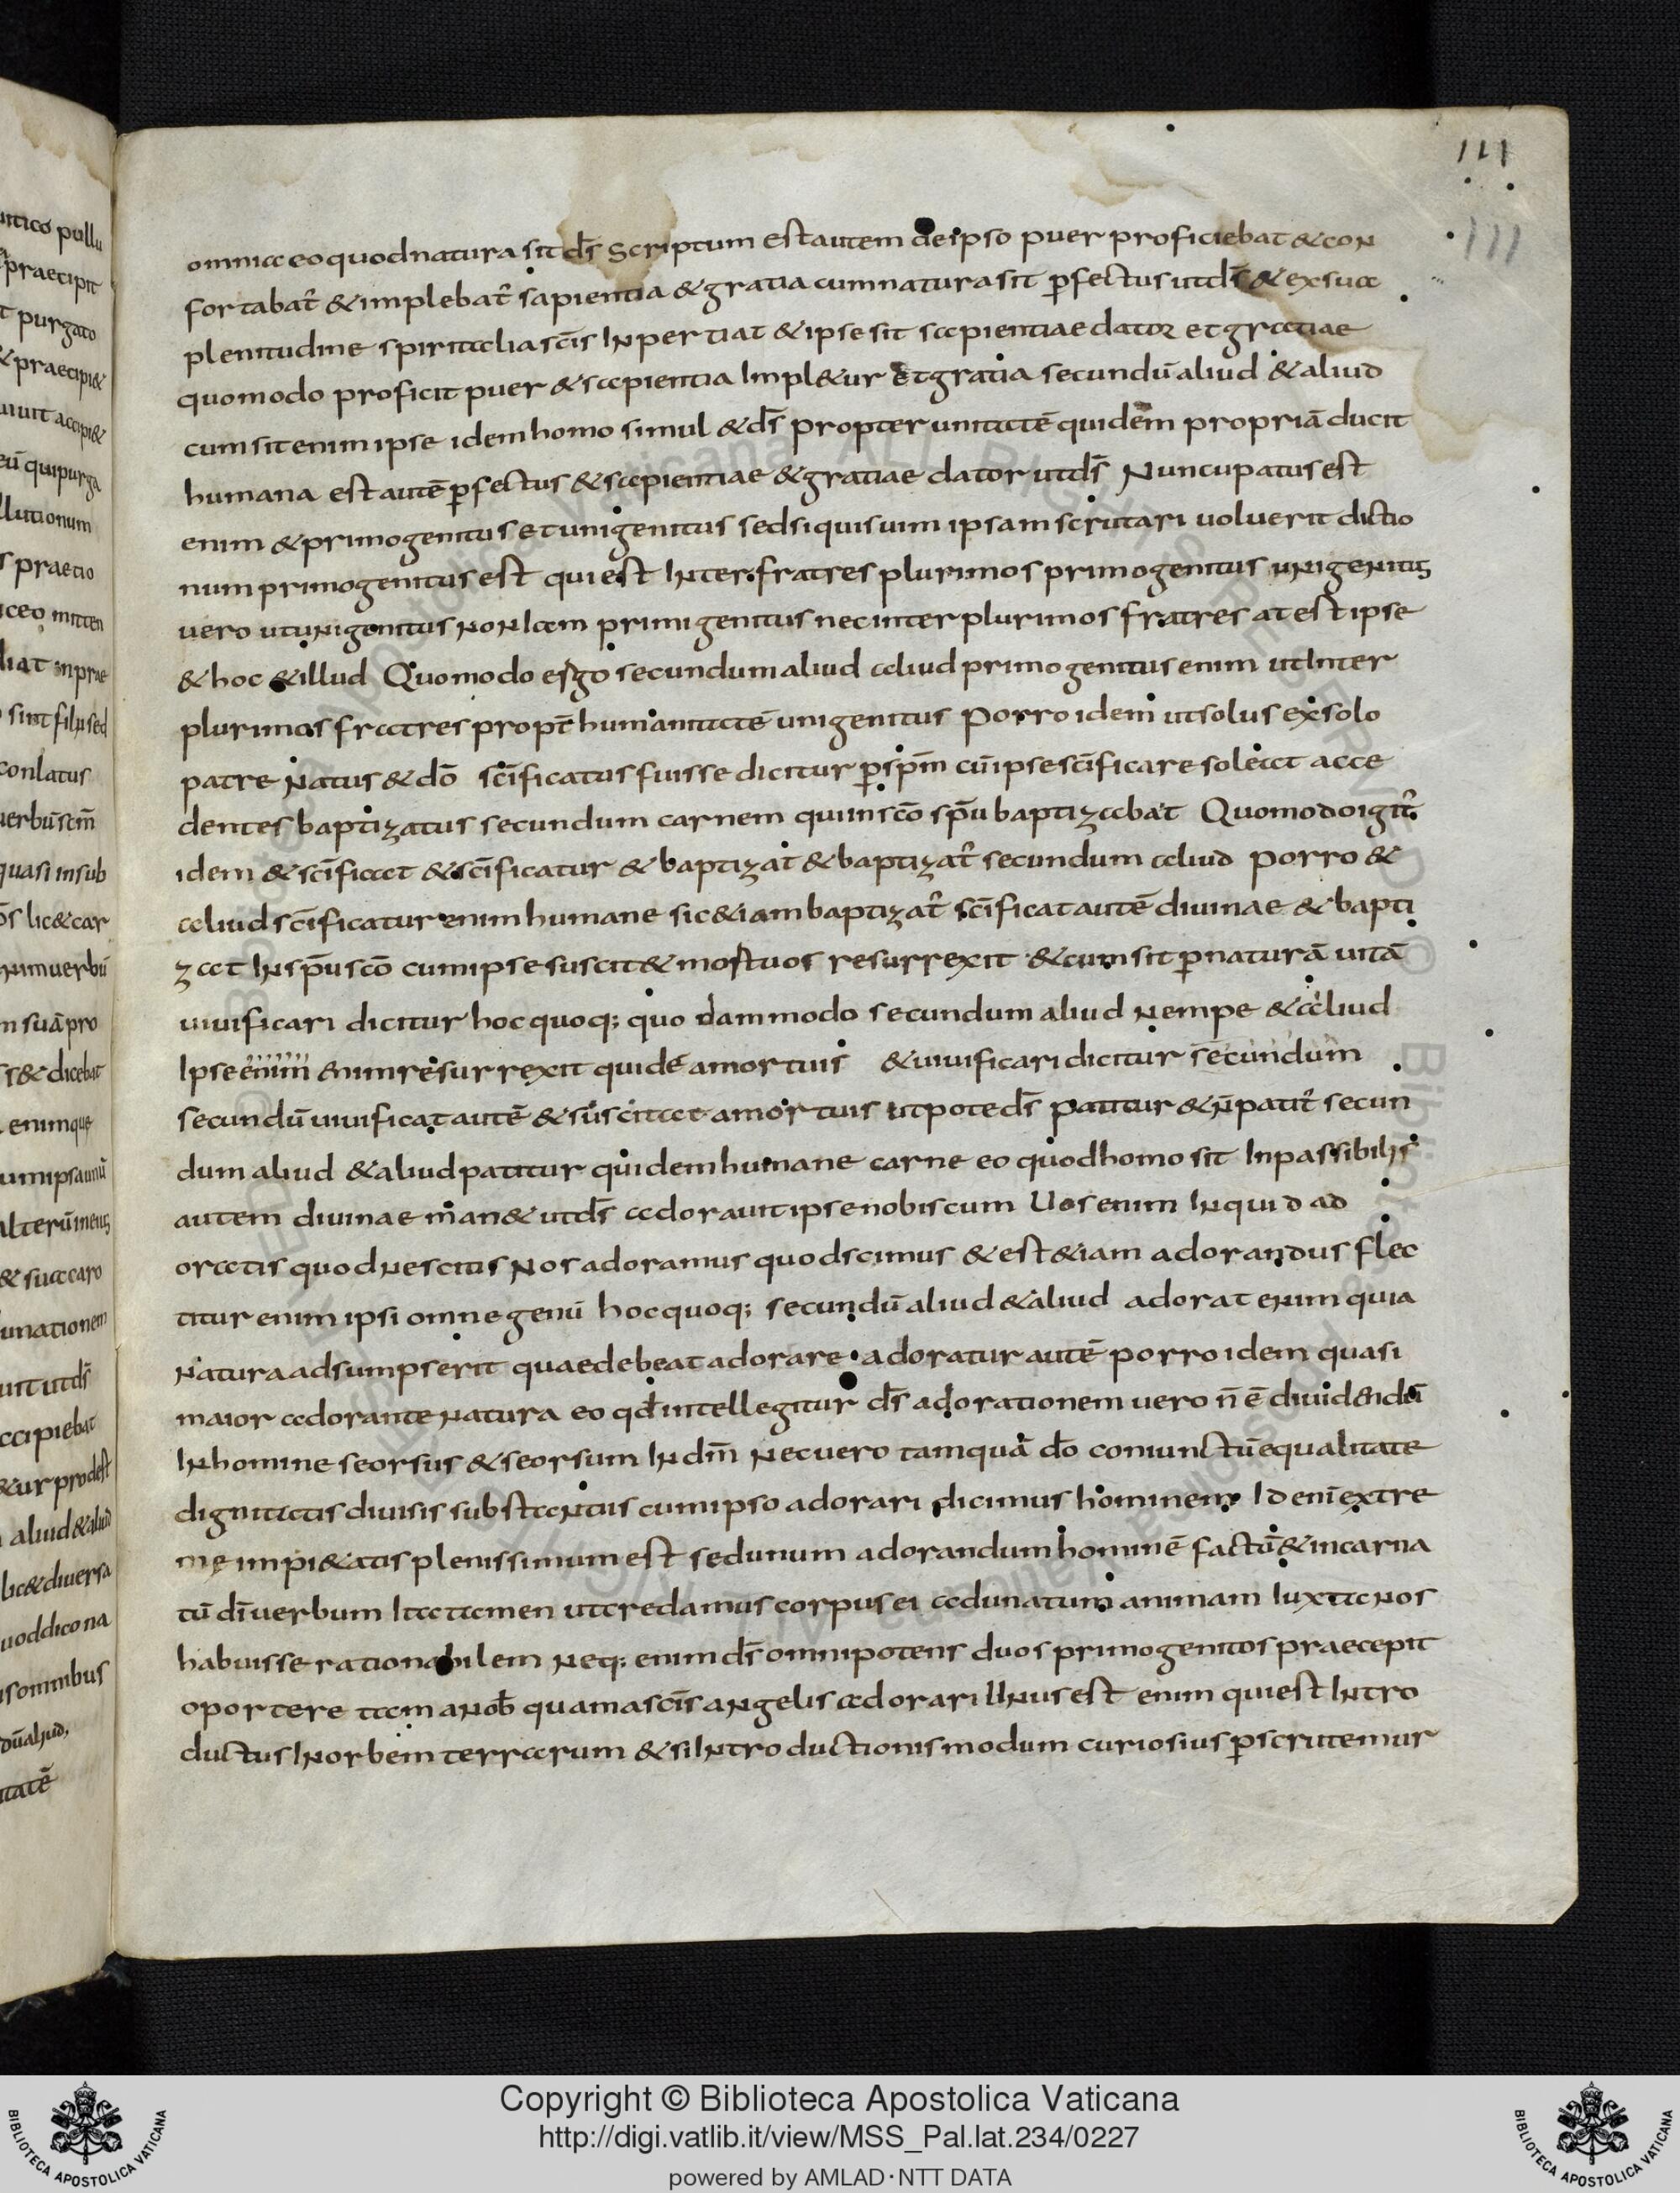 111
111
omnia eo quod natura sit d̄s Scriptum est autem de ipso puer proficiebat & con
fortabat᷑ & implebat᷑ sapientia & gratia cum natura sit ꝑfectus ut d̄s & ex sua
plenitudine spiritalia sc̄is inpertiat & ipse sit sapientiae dator et gratiae
quomodo proficit puer & sapientia impl&ur Et gratia secundū aliud & aliud
cum sit enim ipse idem homo simul & d̄s propter unitatē quidem propriā ducit
humana est autē ꝑfectus & sapientiae & gratiae dator ut d̄s Nuncupatus est
enim & primogenitus et unigenitus sed si quis uim ipsam scrutari uoluerit dictio
num primogenitus est qui est inter fratres plurimos primogenitus unigenitus
uero ut unigenitus non iam primigenitus nec inter plurimos fratres at est ipse
& hoc & illud Quomodo ergo secundum aliud aliud primogenitus enim ut inter
plurimos fratres propt̄ humanitatē unigenitus Porro idem ut solus ex solo
patre natus & dō sc̄ificatus fuisse dicitur ꝑ sp̄m cū ipse sc̄ificare soleat acce
dentes baptizatus secundum carnem qui in scō sp̄u baptizabat Quomodo igit᷑
idem & sc̄ificat & sc̄ificatur & baptizat & baptizat᷑ secundum aliud porro &
aliud sc̄ificatur enim humane sic &iam baptizat᷑ sc̄ificat autē diuinae & bapti
zat in sp̄u scō cum ipse suscit& mortuos resurrexit & cum sit ꝑ naturā uitā
uiuificari dicitur hoc quoq; quodammodo secundum aliud nempe & aliud
Ipse enim enim resurrexit quidē a mortuis & uiuificari dicitur secundum
secundū uiuificat autē & suscitat a mortuis utpote d̄s patitur & n̄ patit᷑ secun
dum aliud & aliud patitur quidem humane carne eo quod homo sit Inpassibilis
autem diuinae man& ut d̄s adorauit ipse nobiscum Uos enim inquid ad
oratis quod nescitis Nos adoramus quod scimus & est &iam adorandus flec
titur enim ipsi omne genū hoc quoq; secundū aliud & aliud adorat enim quia
Natura adsumpserit quae debeat adorare · adoratur autē porro idem quasi
maior adorante natura eo qđ intellegitur d̄s adorationem uero n̄ ē diuidendū
in homine seorsus & seorsum in dm̄ nec uero tamquā dō coniunctū equalitate
dignitatis diuisis substantiis cum ipso adorari dicimus hominem Id enī extre
me impi&atis plenissimum est sed unum adorandum hominē factū & incarna
tū dī uerbum Ita tamen ut credamus corpus ei adunatum animam iuxta nos
habuisse rationabilem Neq; enim d̄s omnipotens duos primogenitos praecepit
oportere tam a nob̄ quam a sc̄is angelis adorari Unus est enim qui est intro
ductus in orbem terrarum & si introductionis modum curiosius ꝑscrutemur
Copyright © Biblioteca Apostolica Vaticana
http://digi.vatlib.it/view/MSS_Pal.lat.234/0227
powered by AMLAD·NTT DATA
BIBLIOTECA APOSTOLICA VATICANA
BIBLIOTECA APOSTOLICA VATICANA